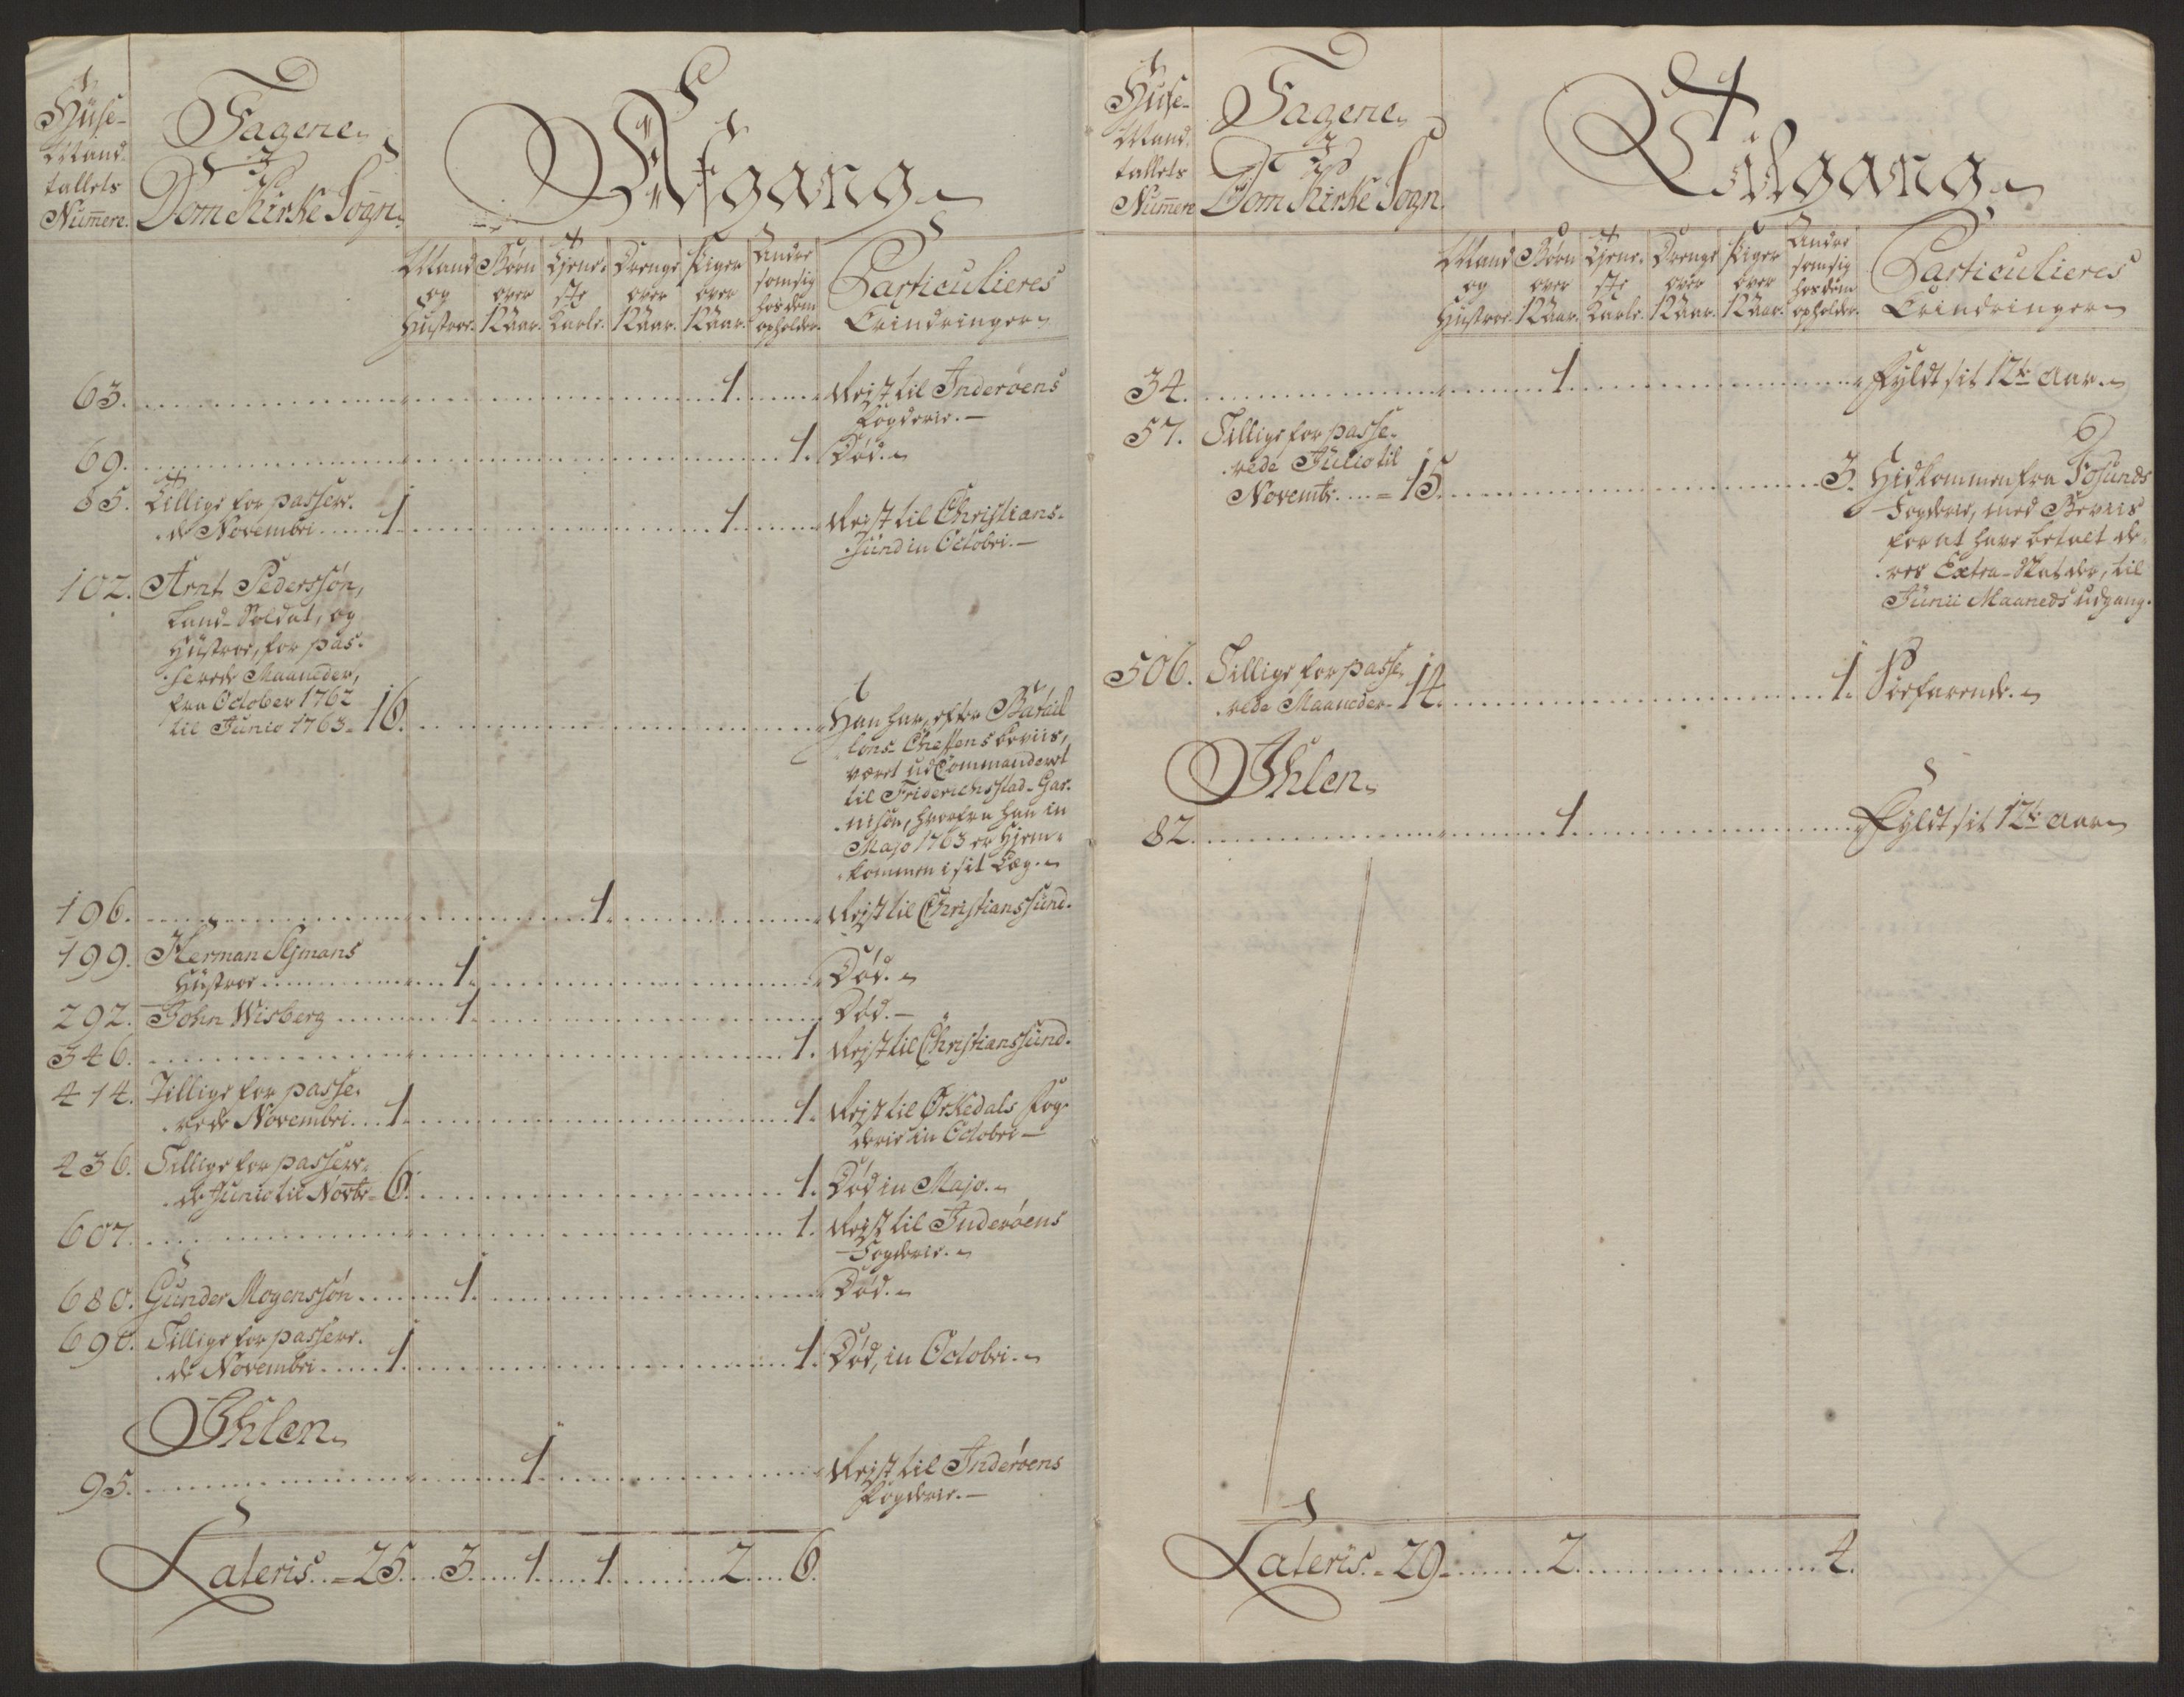 Huse-
Mand-
tallets
Num̅ere.
Fagene
i
Dom Kirke Sogn.
Afgang
Mand
og
Hustroe.
Børn
over
12 Aar.
Tjene-
ste
Karle.
Drenge
over
12 Aar.
Piger
over
12 Aar.
Andre
som sig
hos dem
opholder.
Particulieres
Erindringer
63. 1. Rejst til Inderøens
Fogderie.
69. 1. Død.
85. Tillige for passere-
de Novembri 1 1 Rejst til Christians-
sund in Octobri.
102. Arnt Pederssøn,
Land-Soldat, og
Hustroe, for pas-
serede Maaneder,
fra October 1762
til Junio 1763 = 16. Han har, efter Batail
lons Cheffens beviis,
været ud Commanderet
til Friderichsstad-Gar-
nison, hvorfra han in
Majo 1763 er hjem-
kommen i sit Læg.
196. 1. Rejst til Christianssund.
199. Herman Almans
Hustroe 1. Død.
292. John Wisberg 1. Død.
346. 1. Rejst til Christianssund.
414. Tillige for passe-
rede Novembri 1. 1. Rejst til Ørkedals Fog-
derie in Octobri
436. Tillige for passere-
de Junio til Novbr = 6. 1. Død in Majo.
607. 1. Rejst til Inderøens
Fogderie.
680. Gunder Mogenssøn 1. Død.
690. Tillige for passere-
de Novembri 1. 1. Død, in Octobri.
Ihlen
95. 1. Rejst til Inderøens
Fogderie.
Lateris = 25. 3. 1. 1. 2. 6.
Huse-
Mand-
tallets
Num̅ere
Fagene
i
Dom Kirke Sogn.
Tilgang
Mand
og
Hustroe.
Børn
over
12 Aar.
Tjene-
ste
Karle.
Drenge
over
12 Aar.
Piger
over
12 Aar.
Andre
som sig
hos dem
opholder.
Particulieres
Erindringer
34. 1. Fyldt sit 12te Aar.
57. Tillige for passe-
rede Julio til
Novembr = 15. 3. Hidkommen fra Fosens
Fogderie, med Beviis
for at have betalt de-
res Extra-Skatter, til
Junii Maaneds udgang.
506. Tillige for passe
rede Maaneder 14. 1. Søefarende.
Ihlen
82. 1. Fyldt sit 12te Aar
Lateris = 29. 2. 4.